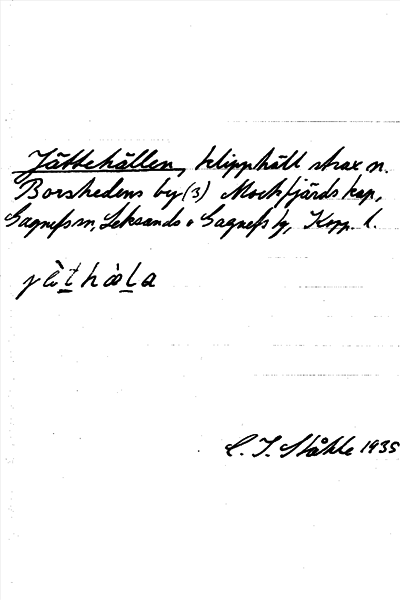 Jättehällen, klipphäll strax n.
Borshedens by (3) Mockfjärds kap,
Gagnefs sn, Leksands o Gagnefs tg, Kopp. l.
C. I. Ståhle 1935